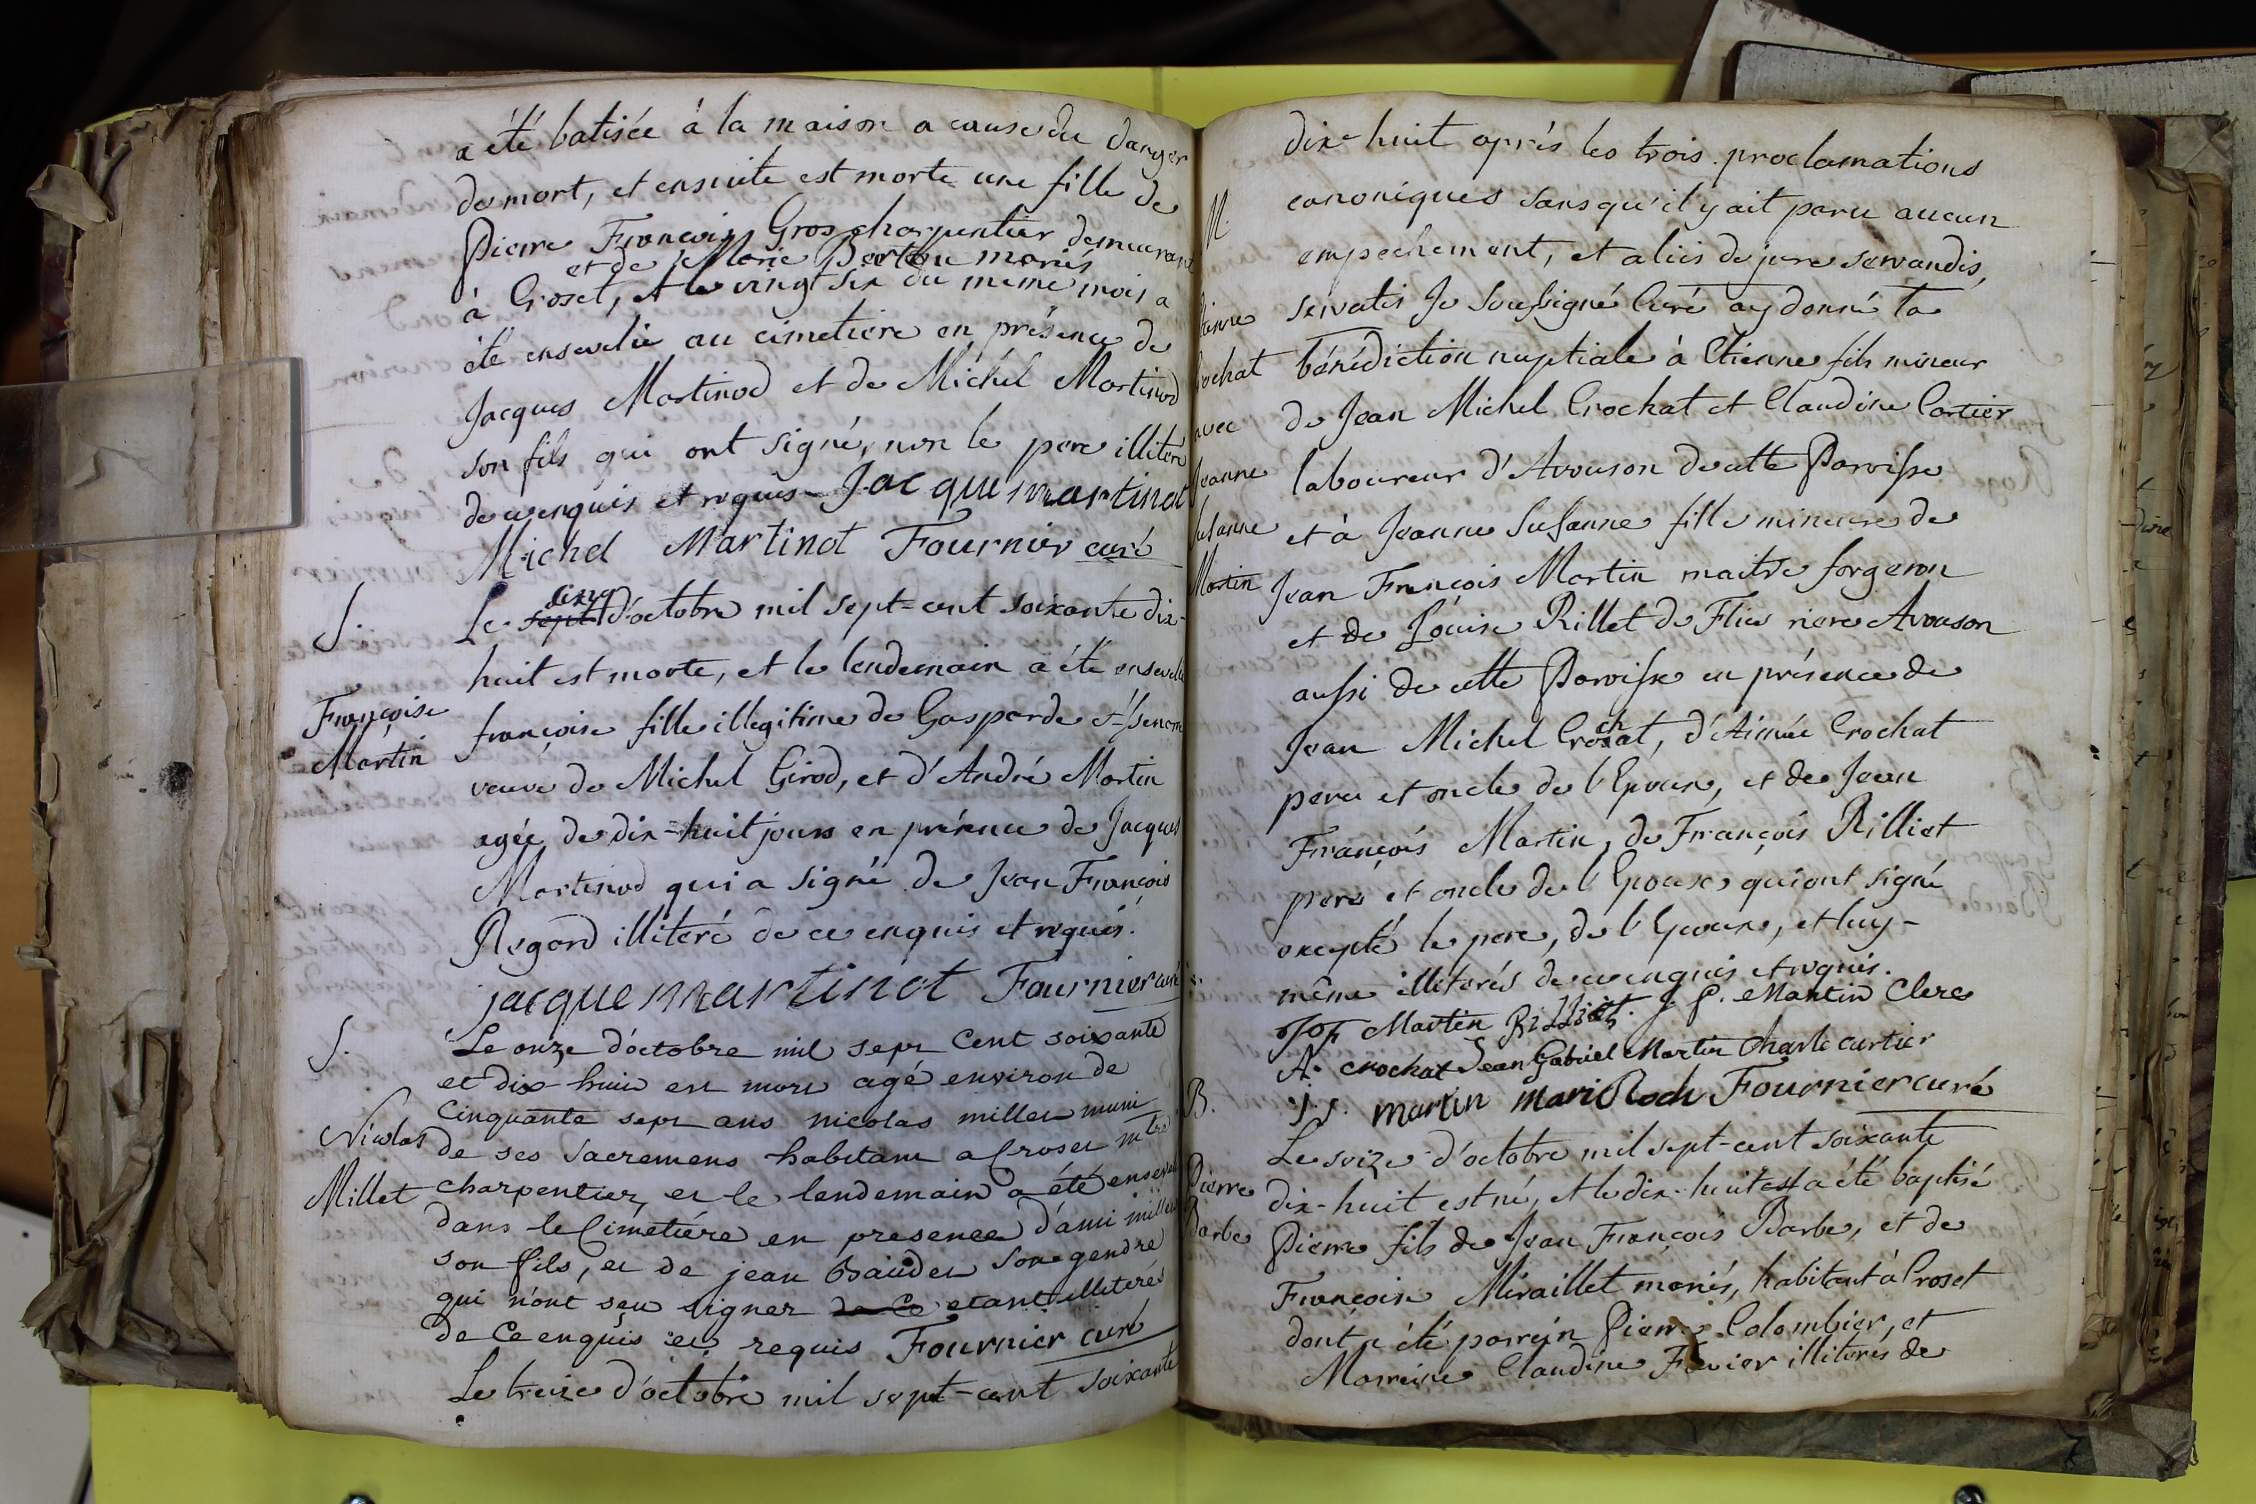 a été batisée à la maison a cause du danger
de mort, et ensuite est morte une fille de
Pierre François Gros charpentier demeurant
et de Marie Bertou mariés
à Croset, et le vingt six du meme mois a
été ensevelie au cimetiere en présence de
Jacques Martinod et de Michel Martinod
son fils qui ont signé, non le pere illiteré
de ce enquis et requis Jacque martinot
Michel Martinot Fournier curé
S.
Le sept dixe d'octobre mil sept=cent soixante dix-
huit est morte, et le lendemain a été ensevelie
Françoise
Martin
françoise fille illegitime de Gasparde
veuve de Michel Girod, et d'André Martin
agée de dix=huit jours en présence de Jacques
Martinod qui a signé de Jean François
Regard illiteré de ce enquis et requis.
jacque martinot Fournier curé
S.
Le onze d'octobre mil sept Cent soixante
et dix huit est mort agé environ de
Cinquante sept ans nicolas millet muni
Nicolas
Millet
de ses sacremens habitant a Croset mtre
charpentier, et le lendemain a été enseveli
dans le Cimetiére en presence d'ami millet
son fils, et de jean Baudet son gendre
qui n'ont seu signer de Ce etant illiterés
de Ce enquis et requis Fournier curé
Le treize d'octobre mil sept-cent soixante
dix-huit aprés les trois proclamations
canoniques sans qu'il y ait paru aucun
empechement, et aliis de jure servandis,
servatis Je soussigné Curé ay donné la
M.
Etienne
Crochat
avec
Jeanne
Susanne
Martin
bénédiction nuptiale à Etienne fils mineur
de Jean Michel Crochat et Claudine Cartier
laboureur d'Avouson de cette Paroisse
et à Jeanne Susanne fille mineure de
Jean François Martin maitre forgeron
et de Louise Rillet de Flies riere Avouson
aussi de cette Paroisse en présence de
Jean Michel Crochat, d'Aimée Crochat
pere et oncle de l'Epoux, et de Jean
François Martin, de François Rilliet
pere et oncle de l'Epouse qui ont signé
excepté le pere, de l'Epoux, et luy-
même illiterés de ce enquis et requis.
Martin Rilliet. J f. Martin Clerc
A. crochat Jean Gabriel Martin Charle cartier
j. f. martin mari Roch Fournier curé
B.
Pierre
Barbe
Le seize d'octobre mil sept-cent soixante
dix-huit est né, et le dix-huit a été baptisé
Pierre fils de Jean François Barbe, et de
Françoise Miraillet mariés, habitant à Croset
dont a été parrein Pierre Colombier, et
Marreine Claudine Favier illiterés de